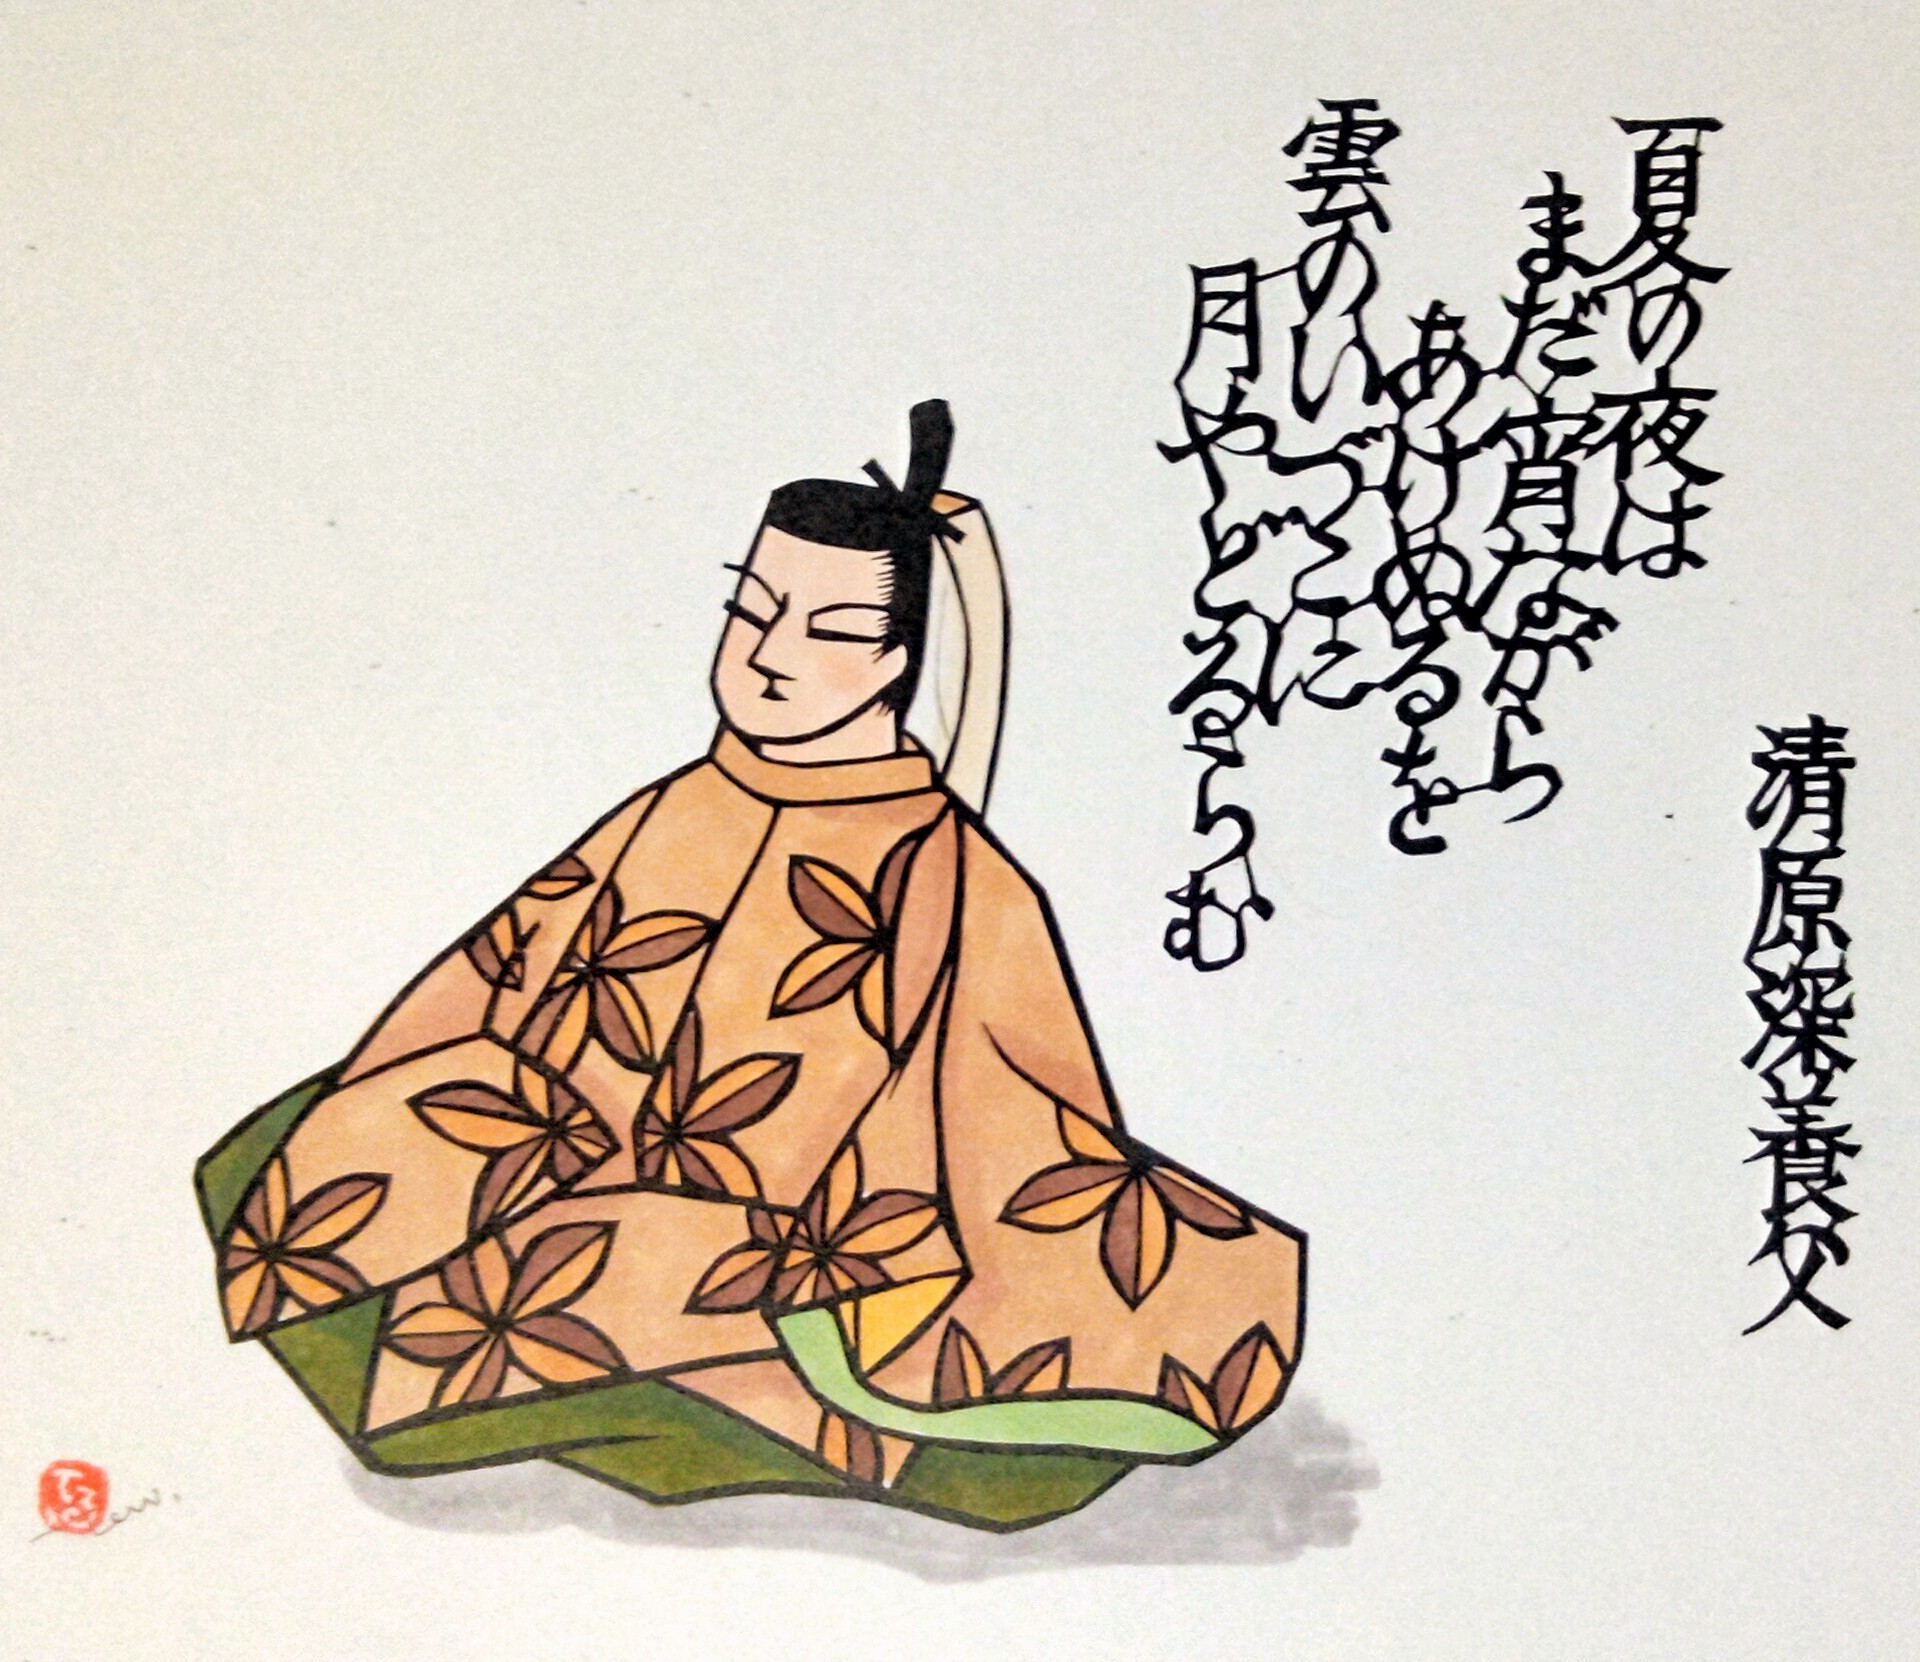 清原深養父
夏の夜は
まだ宵ながら
あけぬるを
雲のいづこに
月やどるらむ